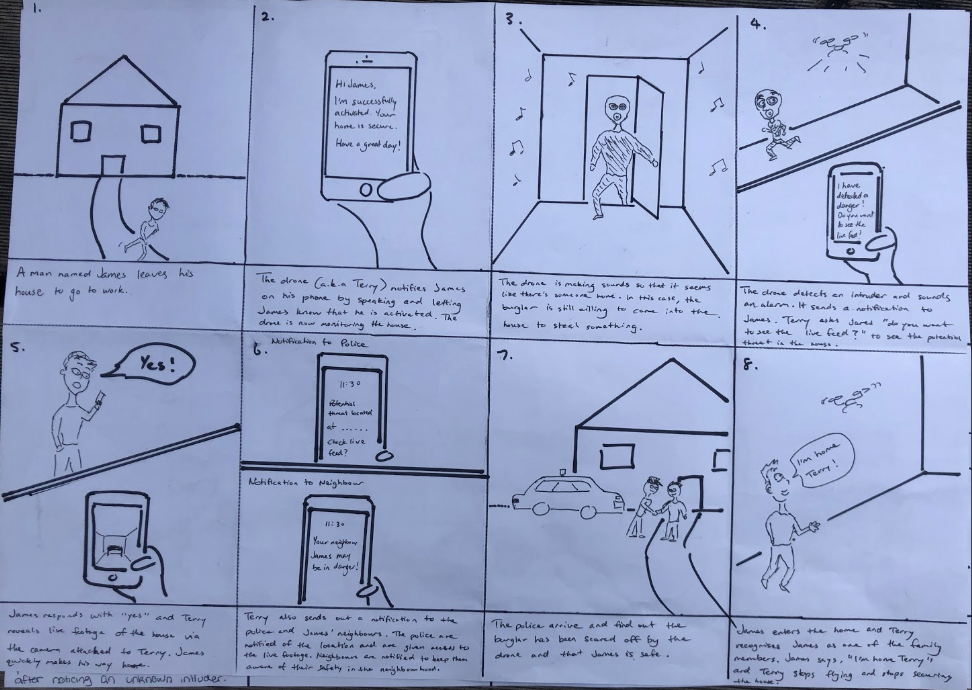 1.
A man named James leaves his
house to go to work.
2.
Hi James,
I'm successfully
activated. Your
home is secure.
Have a great day!
The drone (a.k.a Terry) notifies James
on his phone by speaking and letting
James know that he is activated. The
drone is now monitoring the house.
3.
The drone is making sounds so that it seems
like there's someone home. In this case, the
burglar is still willing to come into the
house to steal something.
4.
I have
detected a
danger!
Do you want
to see the
live feed?
The drone detects an intruder and sounds
an alarm. It sends a notification to
James. Terry asks James "do you want
to see the live feed?" to see the potential
threat in the house.
5.
Yes!
James responds with "yes" and Terry
reveals live footage of the house via
the camera attached to Terry. James
quickly makes his way home
after noticing an unknown intruder.
6.
Notification to Police
11:30
Potential
threat located
at ......
Check live
feed?
Notification to Neighbour
11:30
Your neighbour
James may
be in danger!
Terry also sends out a notification to the
police and James' neighbours. The police are
notified of the location and are given access to
the live footage. Neighbours are notified to keep them
aware of their safety in the neighbourhood.
7.
The police arrive and find out the
burglar has been scared off by the
drone and that James is safe.
8.
I'm home
Terry!
James enters the home and Terry
recognises James as one of the family
members. James says, "I'm home Terry"
and Terry stops flying and stops securing
the house.